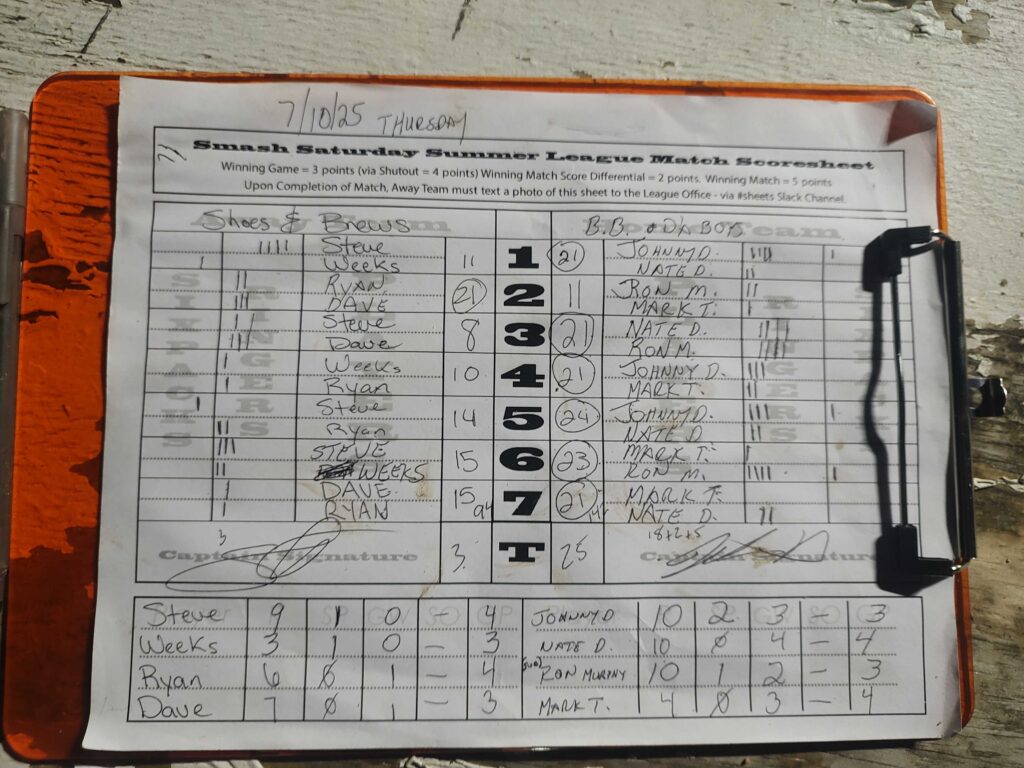 7/10/25 THURSDAY
Smash Saturday Summer League Match Scoresheet
Winning Game = 3 points (via Shutout = 4 points) Winning Match Score Differential = 2 points. Winning Match = 5 points
Upon Completion of Match, Away Team must text a photo of this sheet to the League Office - via #sheets Slack Channel.
Shoes & Brews B.B. & DA BOYS
Steve JOHNNY D.
11 1 21
Weeks NATE D.
RYAN RON M.
21 2 11
DAVE MARK T.
Steve NATE D.
8 3 21
Dave RON M.
Weeks JOHNNY D.
10 4 21
Ryan MARK T.
Steve JOHNNY D.
14 5 24
Ryan NATE D.
STEVE MARK T.
15 6 23
WEEKS RON M.
DAVE MARK T.
15 7 21
RYAN NATE D.
3 18+2+5
Captain Signature 3 T 25 Captain Signature
Steve 9 1 0 4 JOHNNY D 10 2 3 3
Weeks 3 1 0 – 3 NATE D. 10 0 4 – 4
Ryan 6 0 1 – 4 (SUB) RON MURPHY 10 1 2 – 3
Dave 7 0 1 – 3 MARK T. 4 0 3 – 4